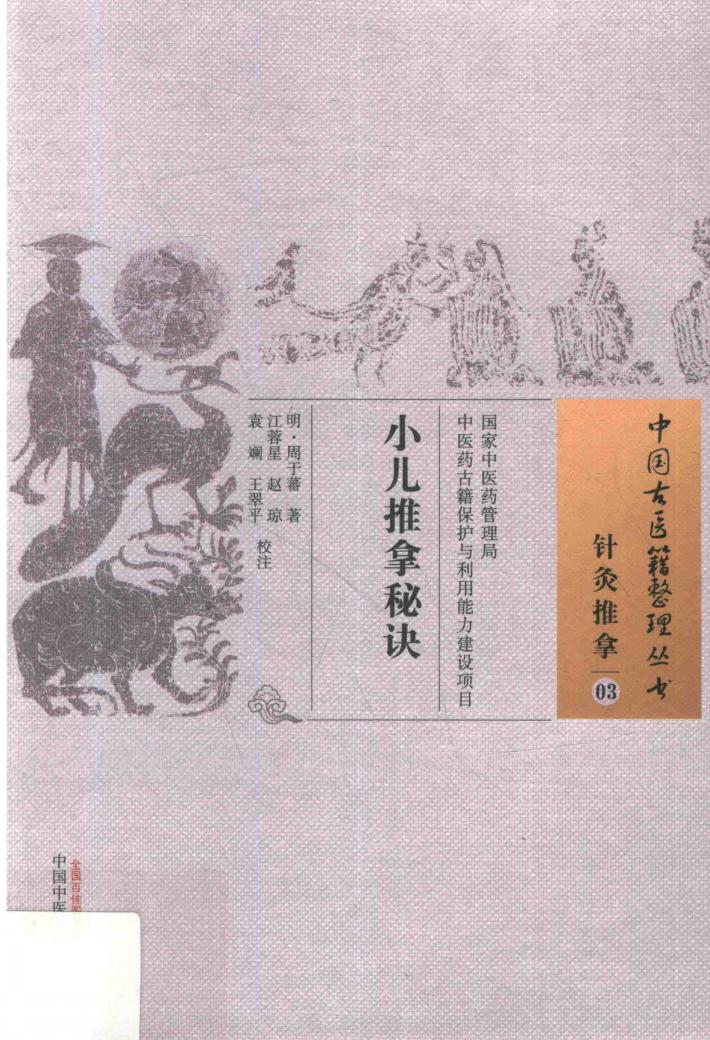 中国古医籍整理丛书
针灸推拿
03
国家中医药管理局
中医药古籍保护与利用能力建设项目
小儿推拿秘诀
明·周于蕃 著
江蓉星 赵 琼
袁 斓 王翠平 校注
全国百佳图
中国中医